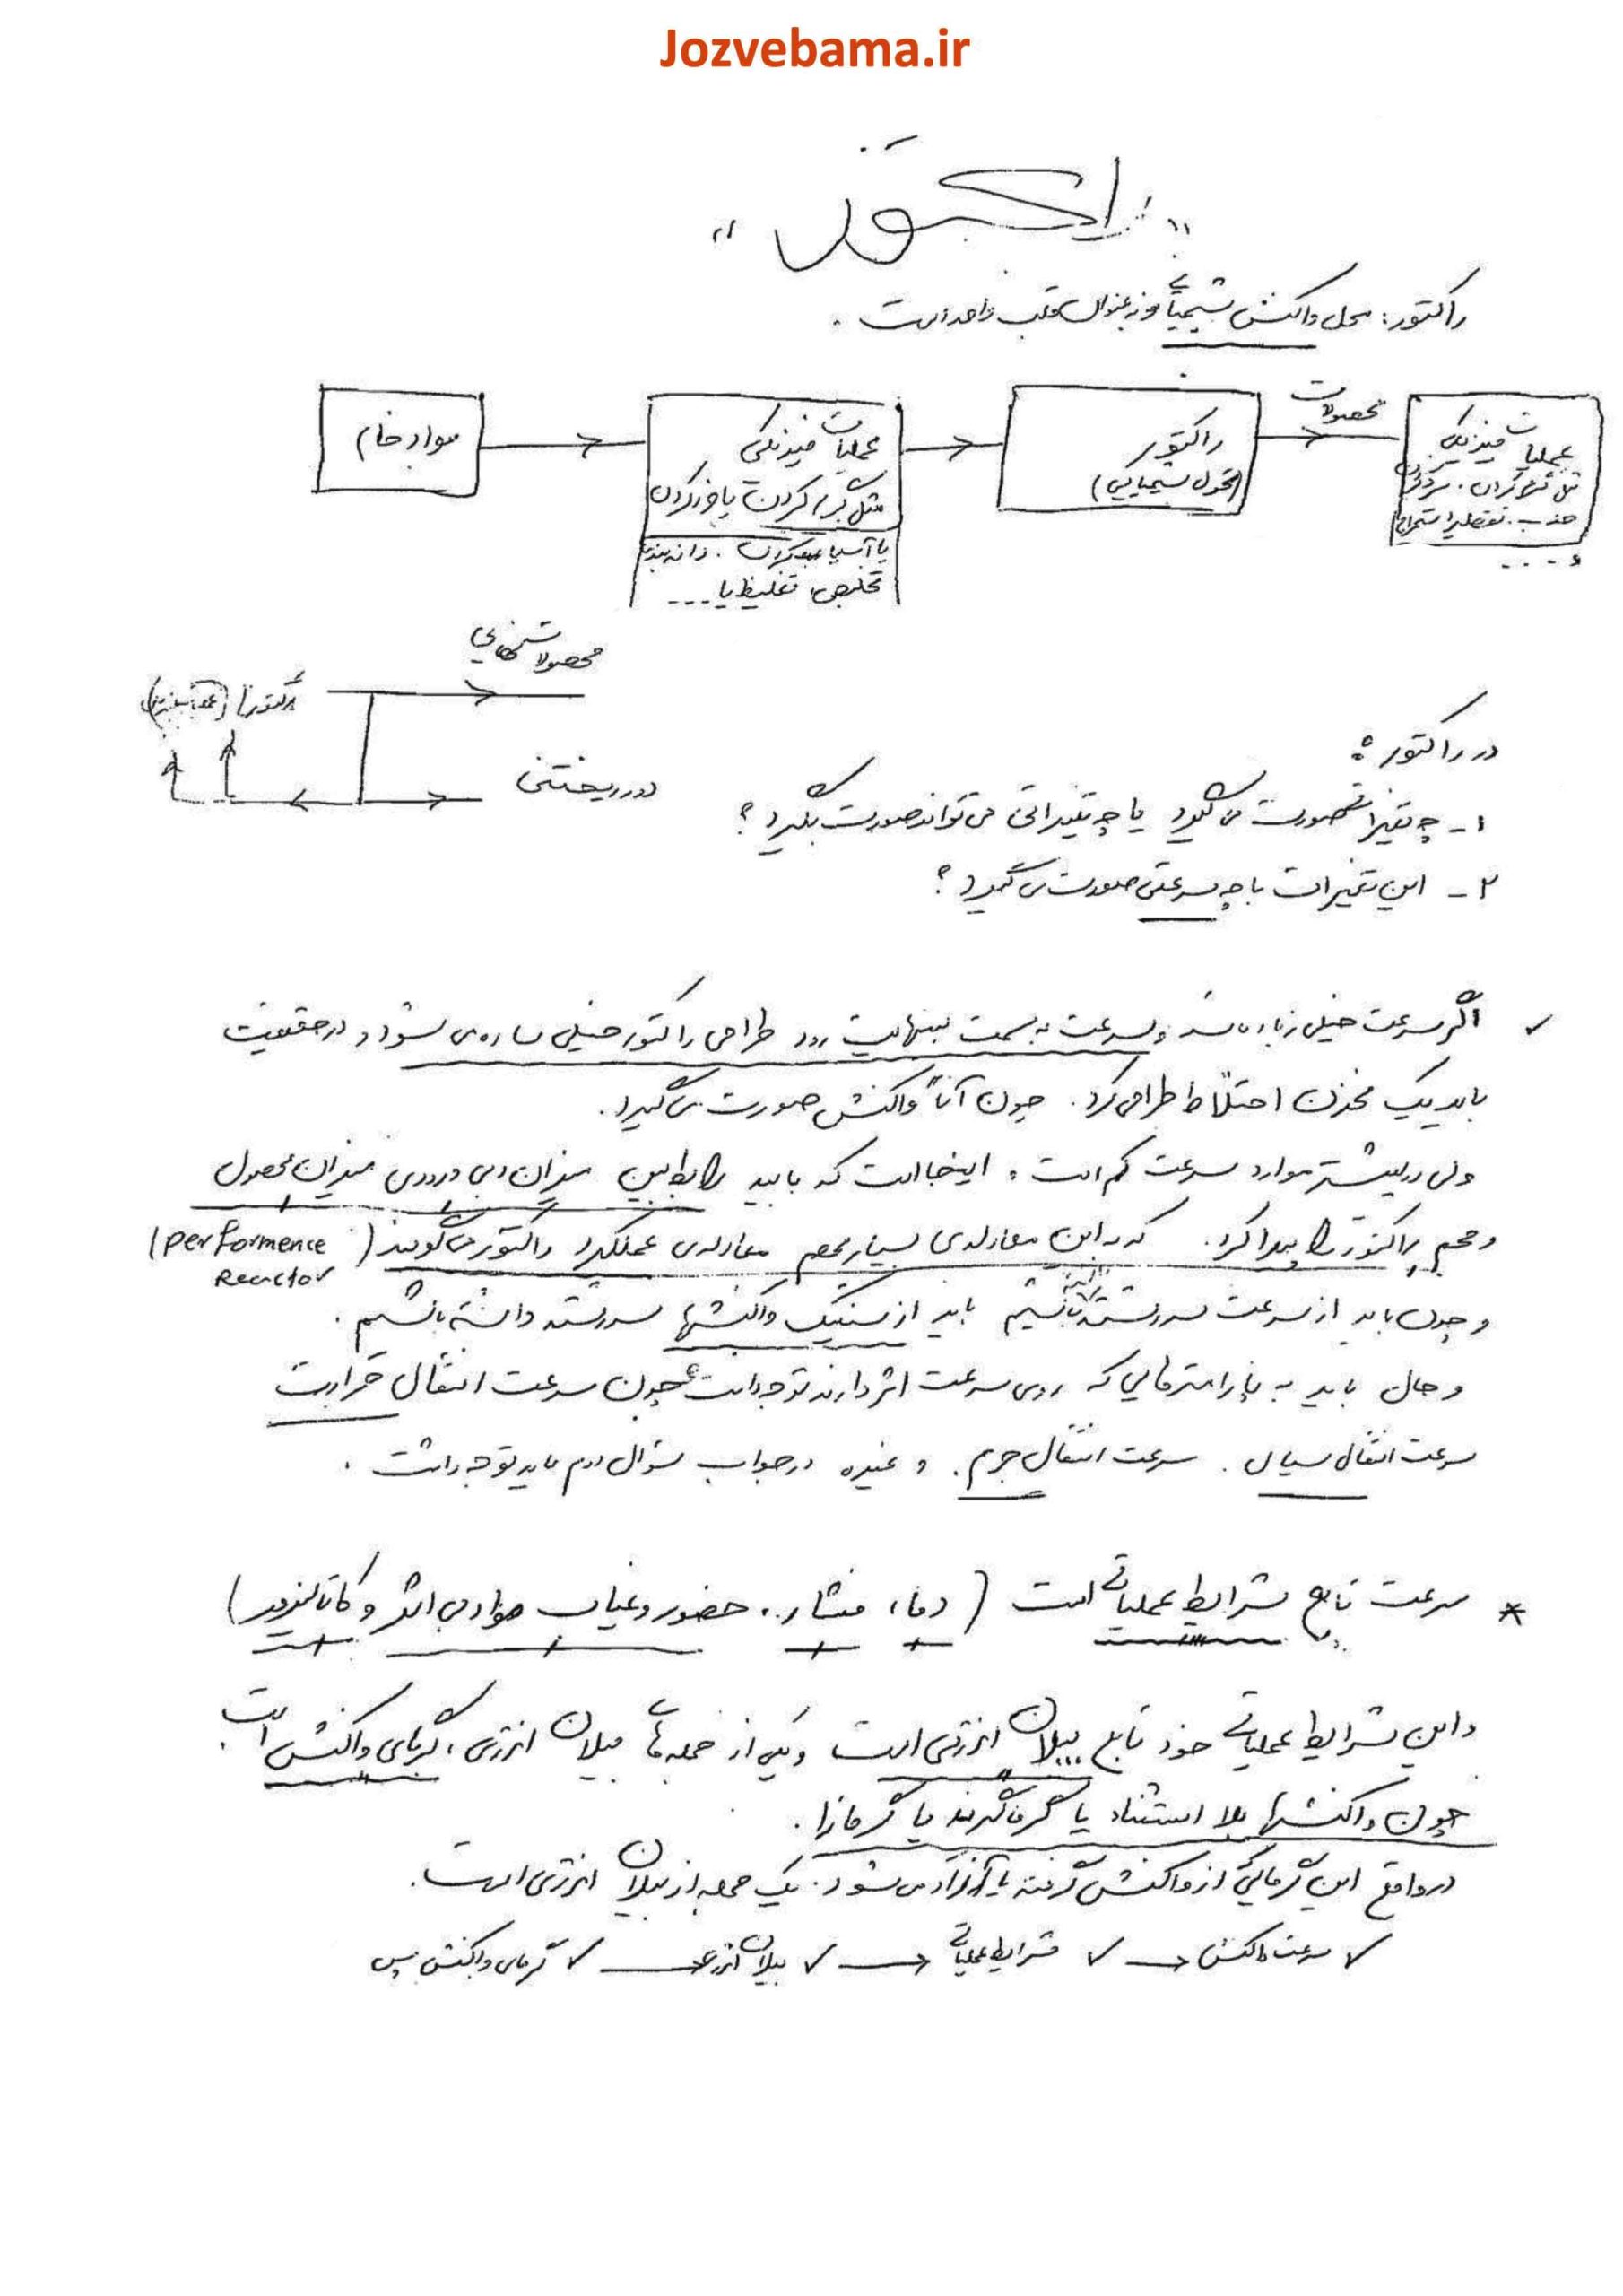 Jozvebama.ir
" راکتور "
راکتور: محل واکنش شیمیائی و به عنوان قلب واحد است.
مواد خام
عملیات فیزیکی
مثل گرم کردن یا خرد کردن
یا آسیاب کردن. دانه بندی
تخلیص، تغلیظ یا ...
راکتور
(تحول شیمیایی)
محصولات
عملیات فیزیکی
جذب. تقطیر استخراج
و ....
محصولات نهایی
راکتور
دور ریختنی
در راکتور:
۱- چه تغییراتی صورت می گیرد یا چه تغییراتی می تواند صورت بگیرد؟
۲- این تغییرات با چه سرعتی صورت می گیرد؟
✓ اگر سرعت خیلی زیاد باشد و سرعت به سمت بینهایت رود طراحی راکتور خیلی ساده می شود و در حقیقت
باید یک مخزن اختلاط طراحی کرد. چون آناً واکنش صورت می گیرد.
ولی در بیشتر موارد سرعت کم است و اینجا است که باید رابطه بین میزان دبی ورودی میزان محصول
و حجم راکتور را پیدا کرد. که به این معادله ی بسیار مهم معادله ی عملکرد راکتور می گویند (performence
Reactor
و چون باید از سرعت سررشته داشته باشیم باید از سنتیک واکنشها سررشته داشته باشیم.
و حال باید به پارامترهایی که روی سرعت اثر دارند توجه داشت چون سرعت انتقال حرارت
سرعت انتقال سیال. سرعت انتقال جرم. و غیره در جواب سؤال دوم باید توجه داشت.
* سرعت تابع شرایط عملیاتی است (دما، فشار، حضور و غیاب مواد بی اثر و کاتالیزور)
و این شرایط عملیاتی خود تابع بیلان انرژی است و یکی از جمله های بیلان انرژی، گرمای واکنش است.
چون واکنشها بلا استثناء یا گرماگیرند یا گرمازا.
در واقع این گرمائی از واکنش گرفته یا آزاد می شود. یک جمله از بیلان انرژی است.
✓ سرعت واکنش → ✓ شرایط عملیاتی → ✓ بیلان انرژی → ✓ گرمای واکنش پس